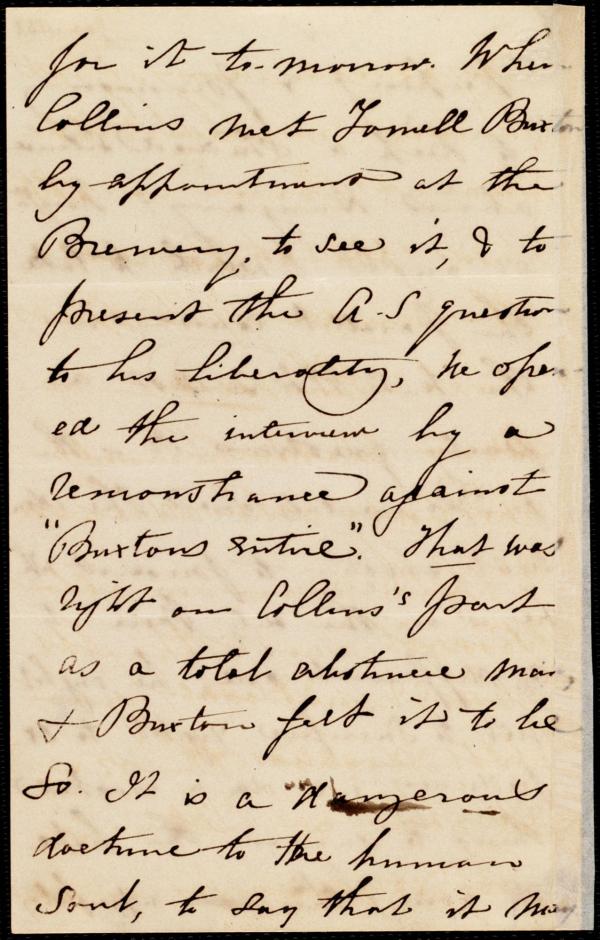 for it to-morrow. When
Collins met Fowell Buxton
by appointment at the
Brewery, to see it, & to
present the A-S question
to his liberality, he open-
ed the interview by a
remonstrance against
"Buxtons entire". That was
right on Collins's part
as a total abstinence man,
& Buxton felt it to be
so. It is a dangerous
doctrine to the human
soul, to say that it may